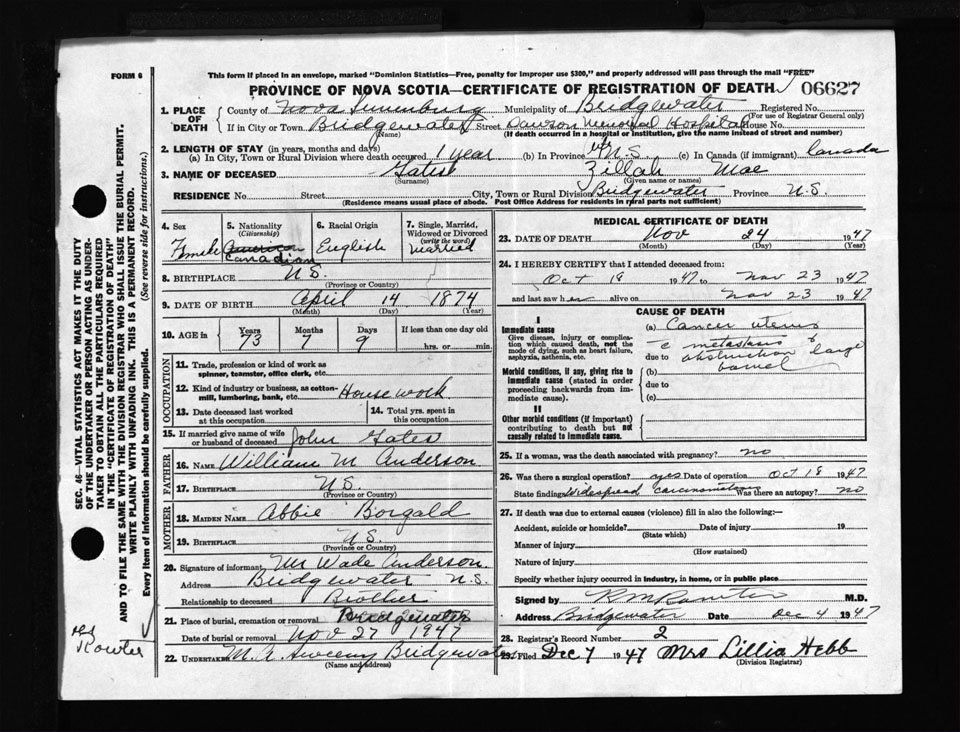 FORM 6
This form if placed in an envelope, marked "Dominion Statistics—Free, penalty for improper use $300," and properly addressed will pass through the mail "FREE"
PROVINCE OF NOVA SCOTIA—CERTIFICATE OF REGISTRATION OF DEATH 06627
1. PLACE OF DEATH
County of Nova Lunenburg Municipality of Bridgewater Registered No.
(For use of Registrar General only)
If in City or Town Bridgewater Street Dawson Memorial Hospital House No.
(Name) (If death occurred in a hospital or institution, give the name instead of street and number)
2. LENGTH OF STAY (in years, months and days)
(a) In City, Town or Rural Division where death occurred 1 year (b) In Province N.S. (c) In Canada (if immigrant) Canada
3. NAME OF DECEASED Gates Zillah Mae
(Surname) (Given name or names)
RESIDENCE No. Street City, Town or Rural Division Bridgewater Province N.S.
(Residence means usual place of abode. Post Office Address for residents in rural parts not sufficient)
4. Sex
Female
5. Nationality (Citizenship)
American
Canadian
6. Racial Origin
English
7. Single, Married, Widowed or Divorced (write the word)
married
8. BIRTHPLACE N.S.
(Province or Country)
9. DATE OF BIRTH April 14 1874
(Month) (Day) (Year)
10. AGE in Years Months Days If less than one day old
73 7 9 hrs. or min.
OCCUPATION
11. Trade, profession or kind of work as spinner, teamster, office clerk, etc.
12. Kind of industry or business, as cotton-mill, lumbering, bank, etc. Housework
13. Date deceased last worked at this occupation
14. Total yrs. spent in this occupation
15. If married give name of wife or husband of deceased John Gates
FATHER
16. NAME William M Anderson
17. BIRTHPLACE N.S.
(Province or Country)
MOTHER
18. MAIDEN NAME Abbie Borgald
19. BIRTHPLACE N.S.
(Province or Country)
20. Signature of informant Mr Wade Anderson
Address Bridgewater N.S.
Relationship to deceased Brother
21. Place of burial, cremation or removal Bridgewater
Date of burial or removal Nov 27 1947
22. UNDERTAKER Sweeny Bridgewater
(Name and address)
MEDICAL CERTIFICATE OF DEATH
23. DATE OF DEATH Nov 24 1947
(Month) (Day) (Year)
24. I HEREBY CERTIFY that I attended deceased from:
Oct 18 1947 to Nov 23 1947
and last saw her alive on Nov 23 1947
CAUSE OF DEATH
I
Immediate cause
Give disease, injury or complication which caused death, not the mode of dying, such as heart failure, asphyxia, asthenia, etc.
(a) Cancer uterus
c metastasis &
due to obstruction large
bowel
Morbid conditions, if any, giving rise to immediate cause (stated in order proceeding backwards from immediate cause).
(b)
due to
(c)
II
Other morbid conditions (if important) contributing to death but not causally related to immediate cause.
25. If a woman, was the death associated with pregnancy? no
26. Was there a surgical operation? yes Date of operation Oct 18 1947
State findings Widespread carcinomatosis Was there an autopsy? no
27. If death was due to external causes (violence) fill in also the following:—
Accident, suicide or homicide? Date of injury 19
(State which)
Manner of injury
(How sustained)
Nature of injury
Specify whether injury occurred in industry, in home, or in public place
Signed by M.D.
Address Bridgewater Date Dec 4 1947
28. Registrar's Record Number 2
29. Filed Dec 7 1947 Mrs Lillia Hebb
(Division Registrar)
SEC. 46—VITAL STATISTICS ACT MAKES IT THE DUTY
OF THE UNDERTAKER OR PERSON ACTING AS UNDER-
TAKER TO OBTAIN ALL THE PARTICULARS REQUIRED
IN THE "CERTIFICATE OF REGISTRATION OF DEATH"
AND TO FILE THE SAME WITH THE DIVISION REGISTRAR WHO SHALL ISSUE THE BURIAL PERMIT.
WRITE PLAINLY WITH UNFADING INK. THIS IS A PERMANENT RECORD.
Every item of Information should be carefully supplied. (See reverse side for instructions.)